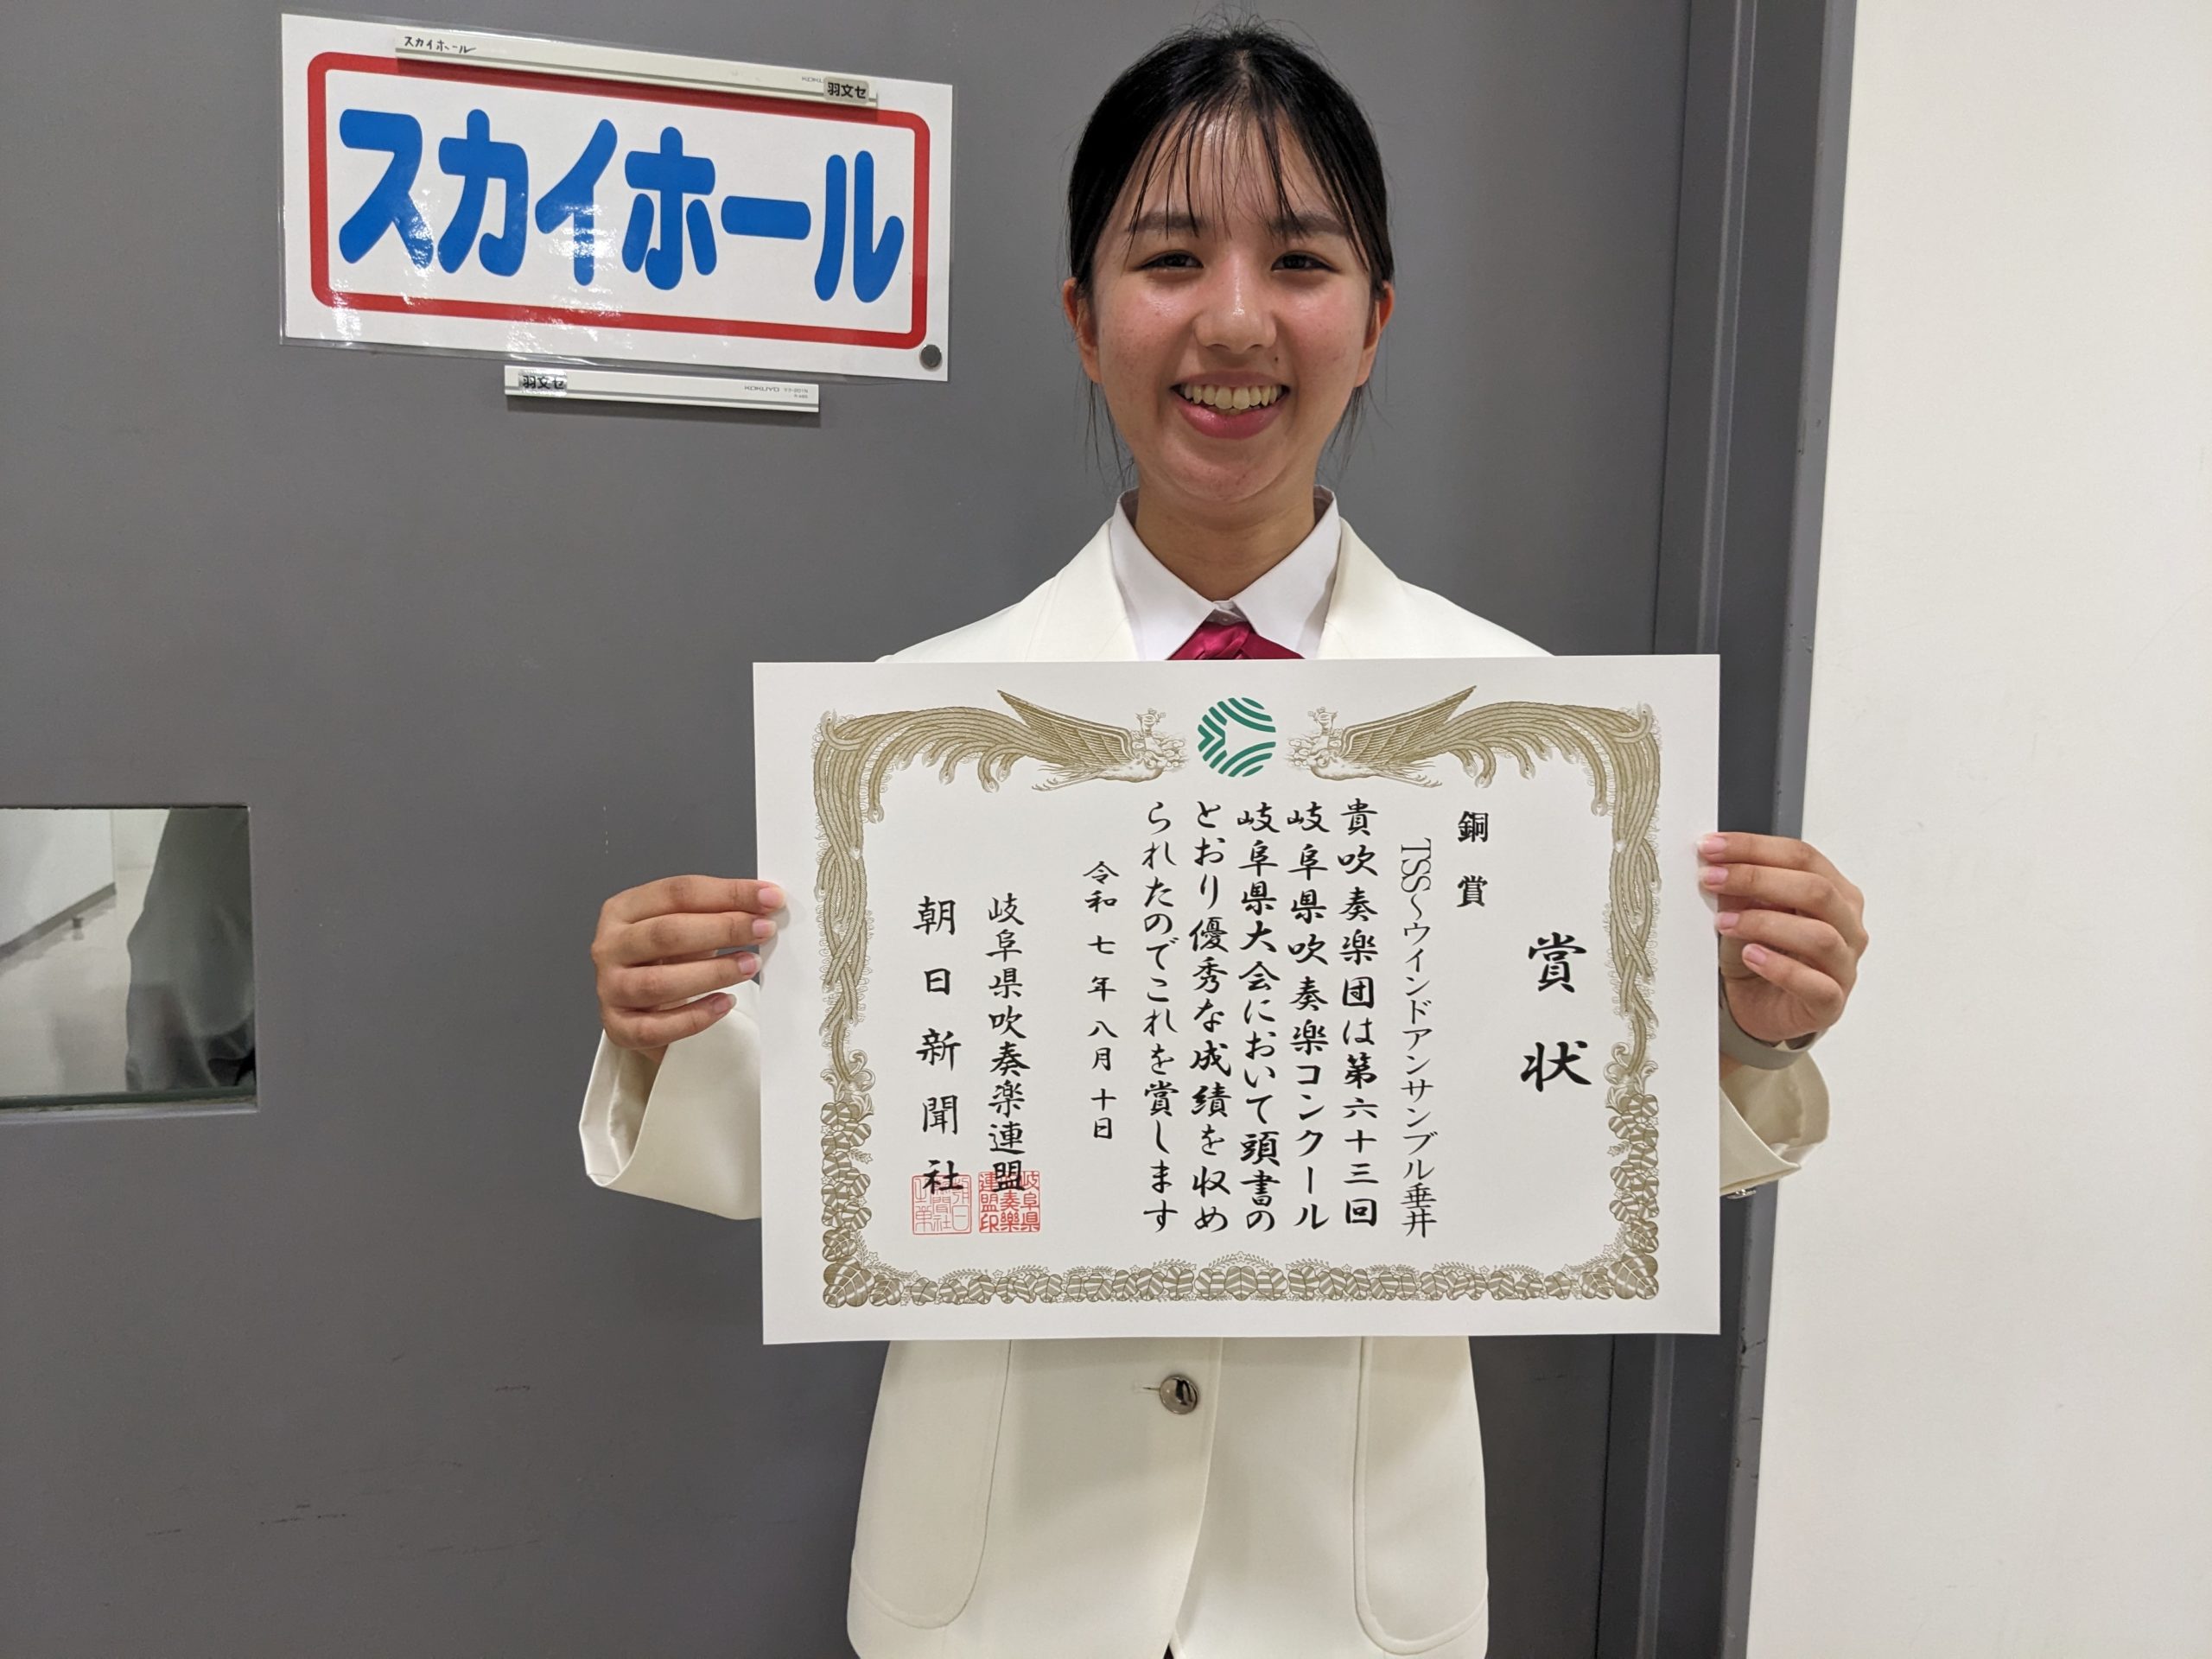 スカイホール
羽文セ
スカイホール
羽文セ
KOKUYO
賞状
銅賞
TSS〜ウインドアンサンブル垂井
貴吹奏楽団は第六十三回
岐阜県吹奏楽コンクール
岐阜県大会において頭書の
とおり優秀な成績を収め
られたのでこれを賞します
令和七年八月十日
岐阜県吹奏楽連盟
朝日新聞社
岐阜県
吹奏樂
連盟印